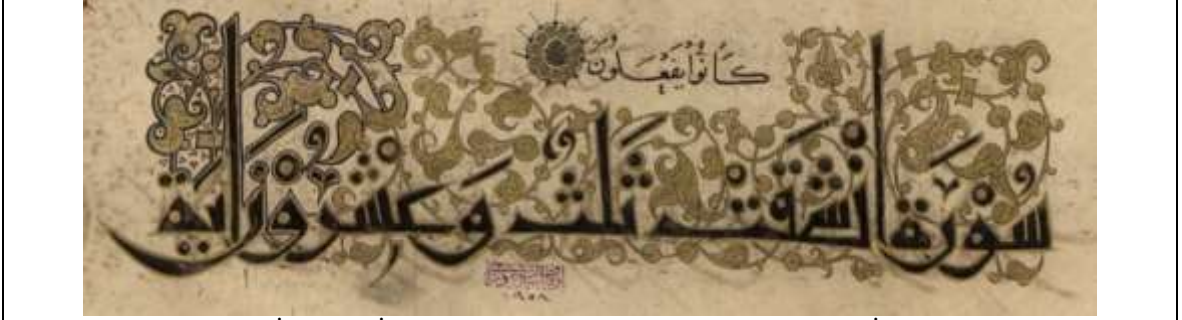 كَانُوا يَفْعَلُونَ
سُوْرَة انشقت ثلث وعشرون اية